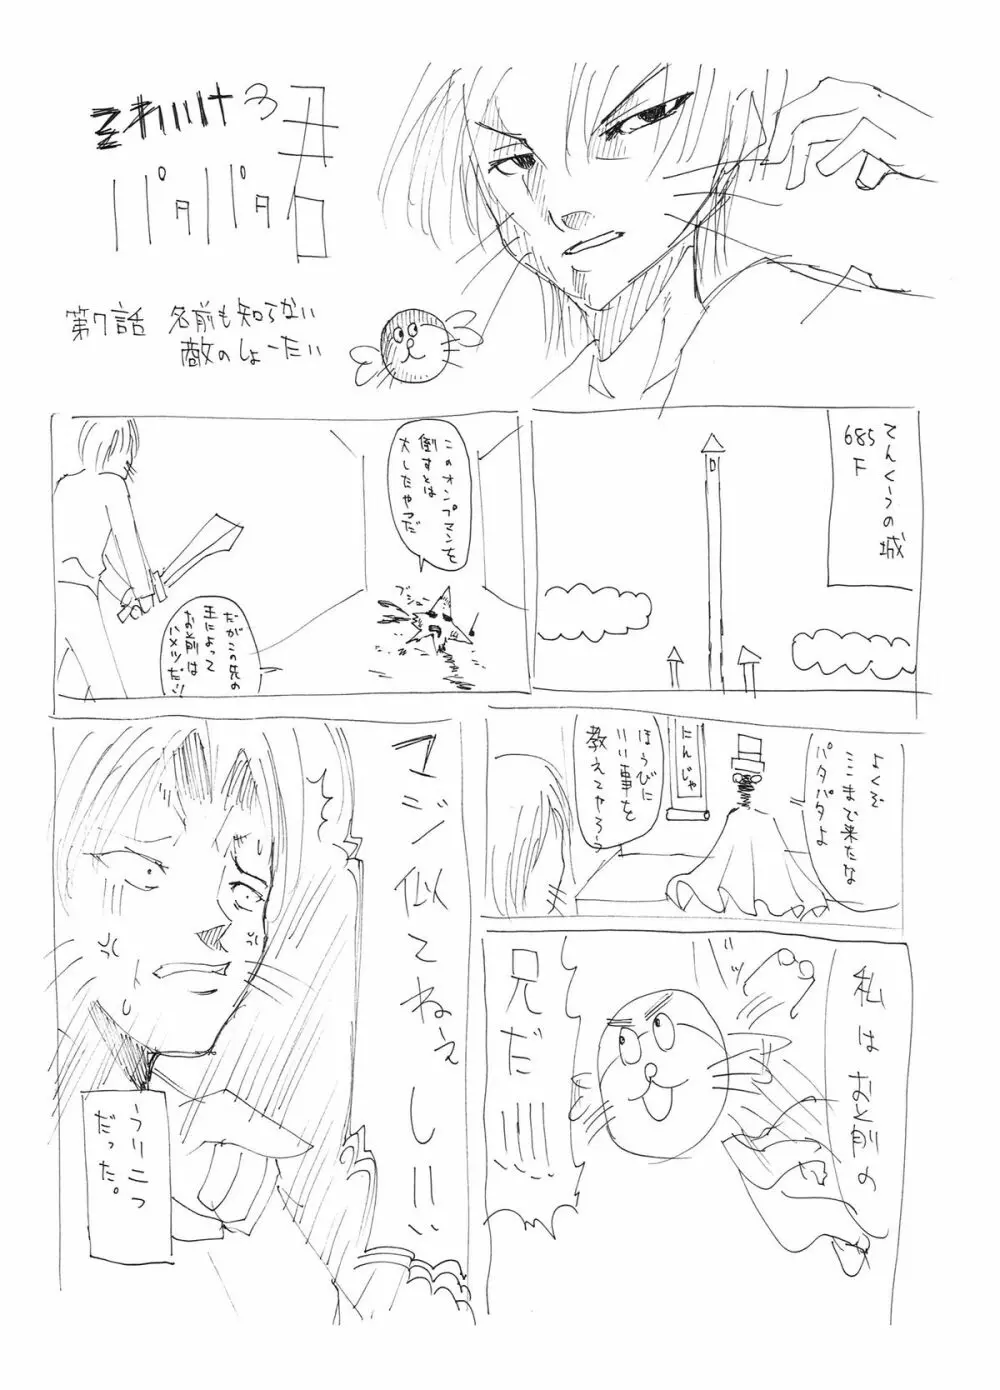 それいけっ
パタパタ君
第7話 名前も知らない
敵のしょーたい
てんくうの城
685F
このオンプマンを
倒すとは
大したやつだ
ブシュ
だがこの先の
王によって
お前は
ハメツだ!!
よくぞ
ここまで来たな
パタパタよ
たんじゃ
ほうびに
いい事を
教えてやろう
私はお前の
バッ
兄だ!!!!
マジ似てねぇし!!
うり二つ
だった。